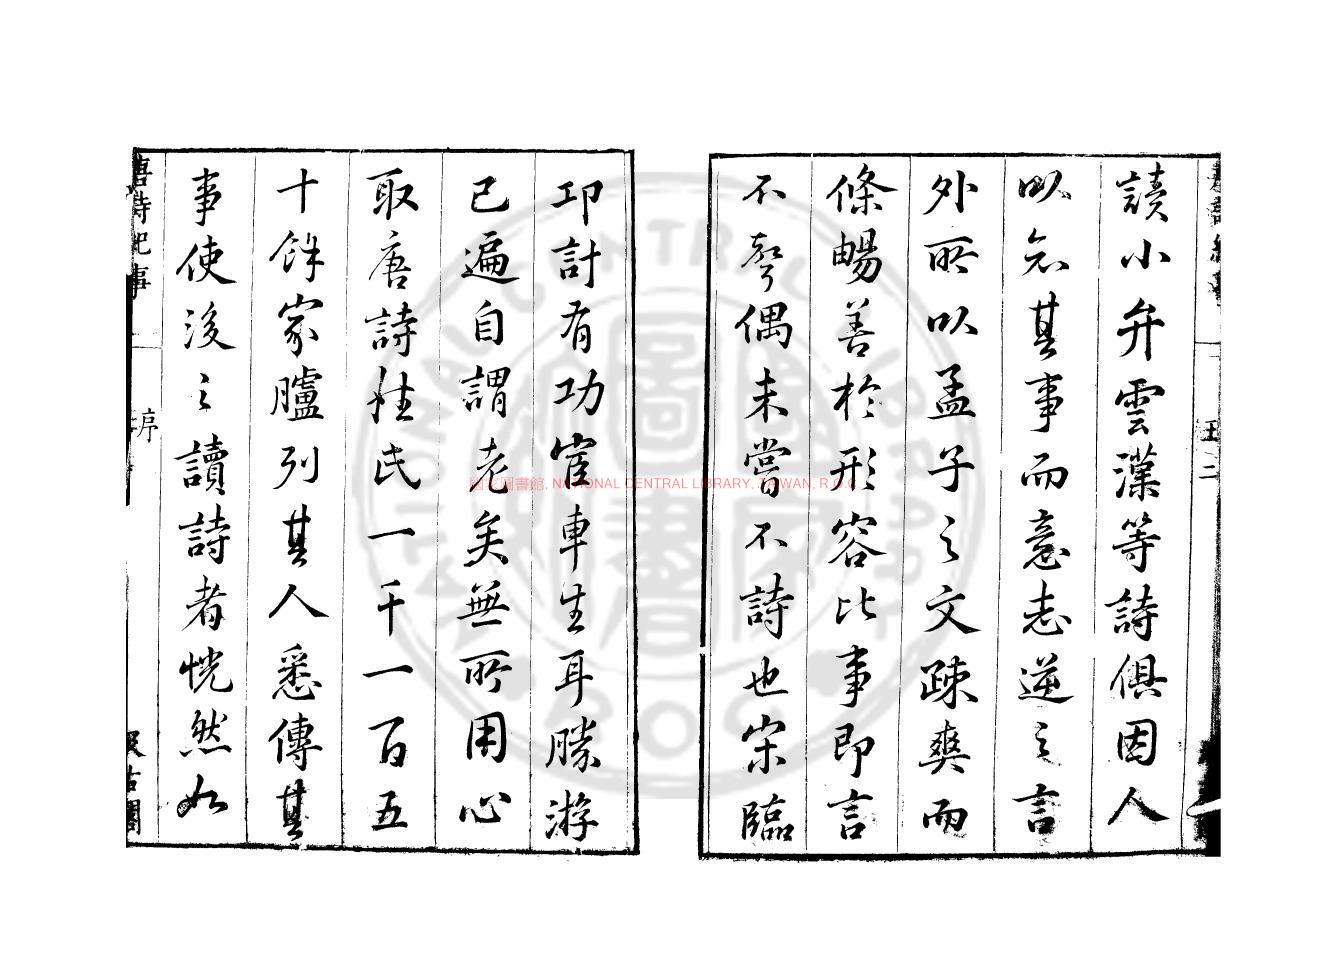 讀小弁雲漢等詩俱因人
以知其事而意志逆之言
外所以孟子之文疎爽而
條暢善於形容比事即言
不聲偶未嘗不詩也宋臨
邛計有功宦車生耳勝游
已遍自謂老矣無所用心
取唐詩姓氏一千一百五
十餘家臚列其人悉傳其
事使後之讀詩者恍然如
唐詩紀事 序 汲古閣
國家圖書館, NATIONAL CENTRAL LIBRARY, TAIWAN, R.O.C